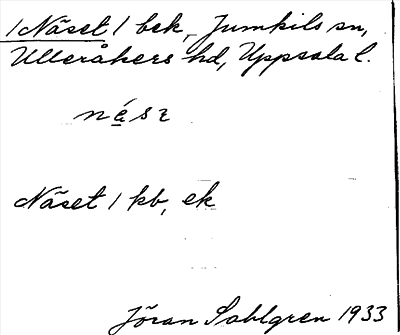 /Näset/ bek, Jumkils sn,
Ulleråkers hd, Uppsala l.
näsz
Näset / kb, ek
Jöran Sahlgren 1933